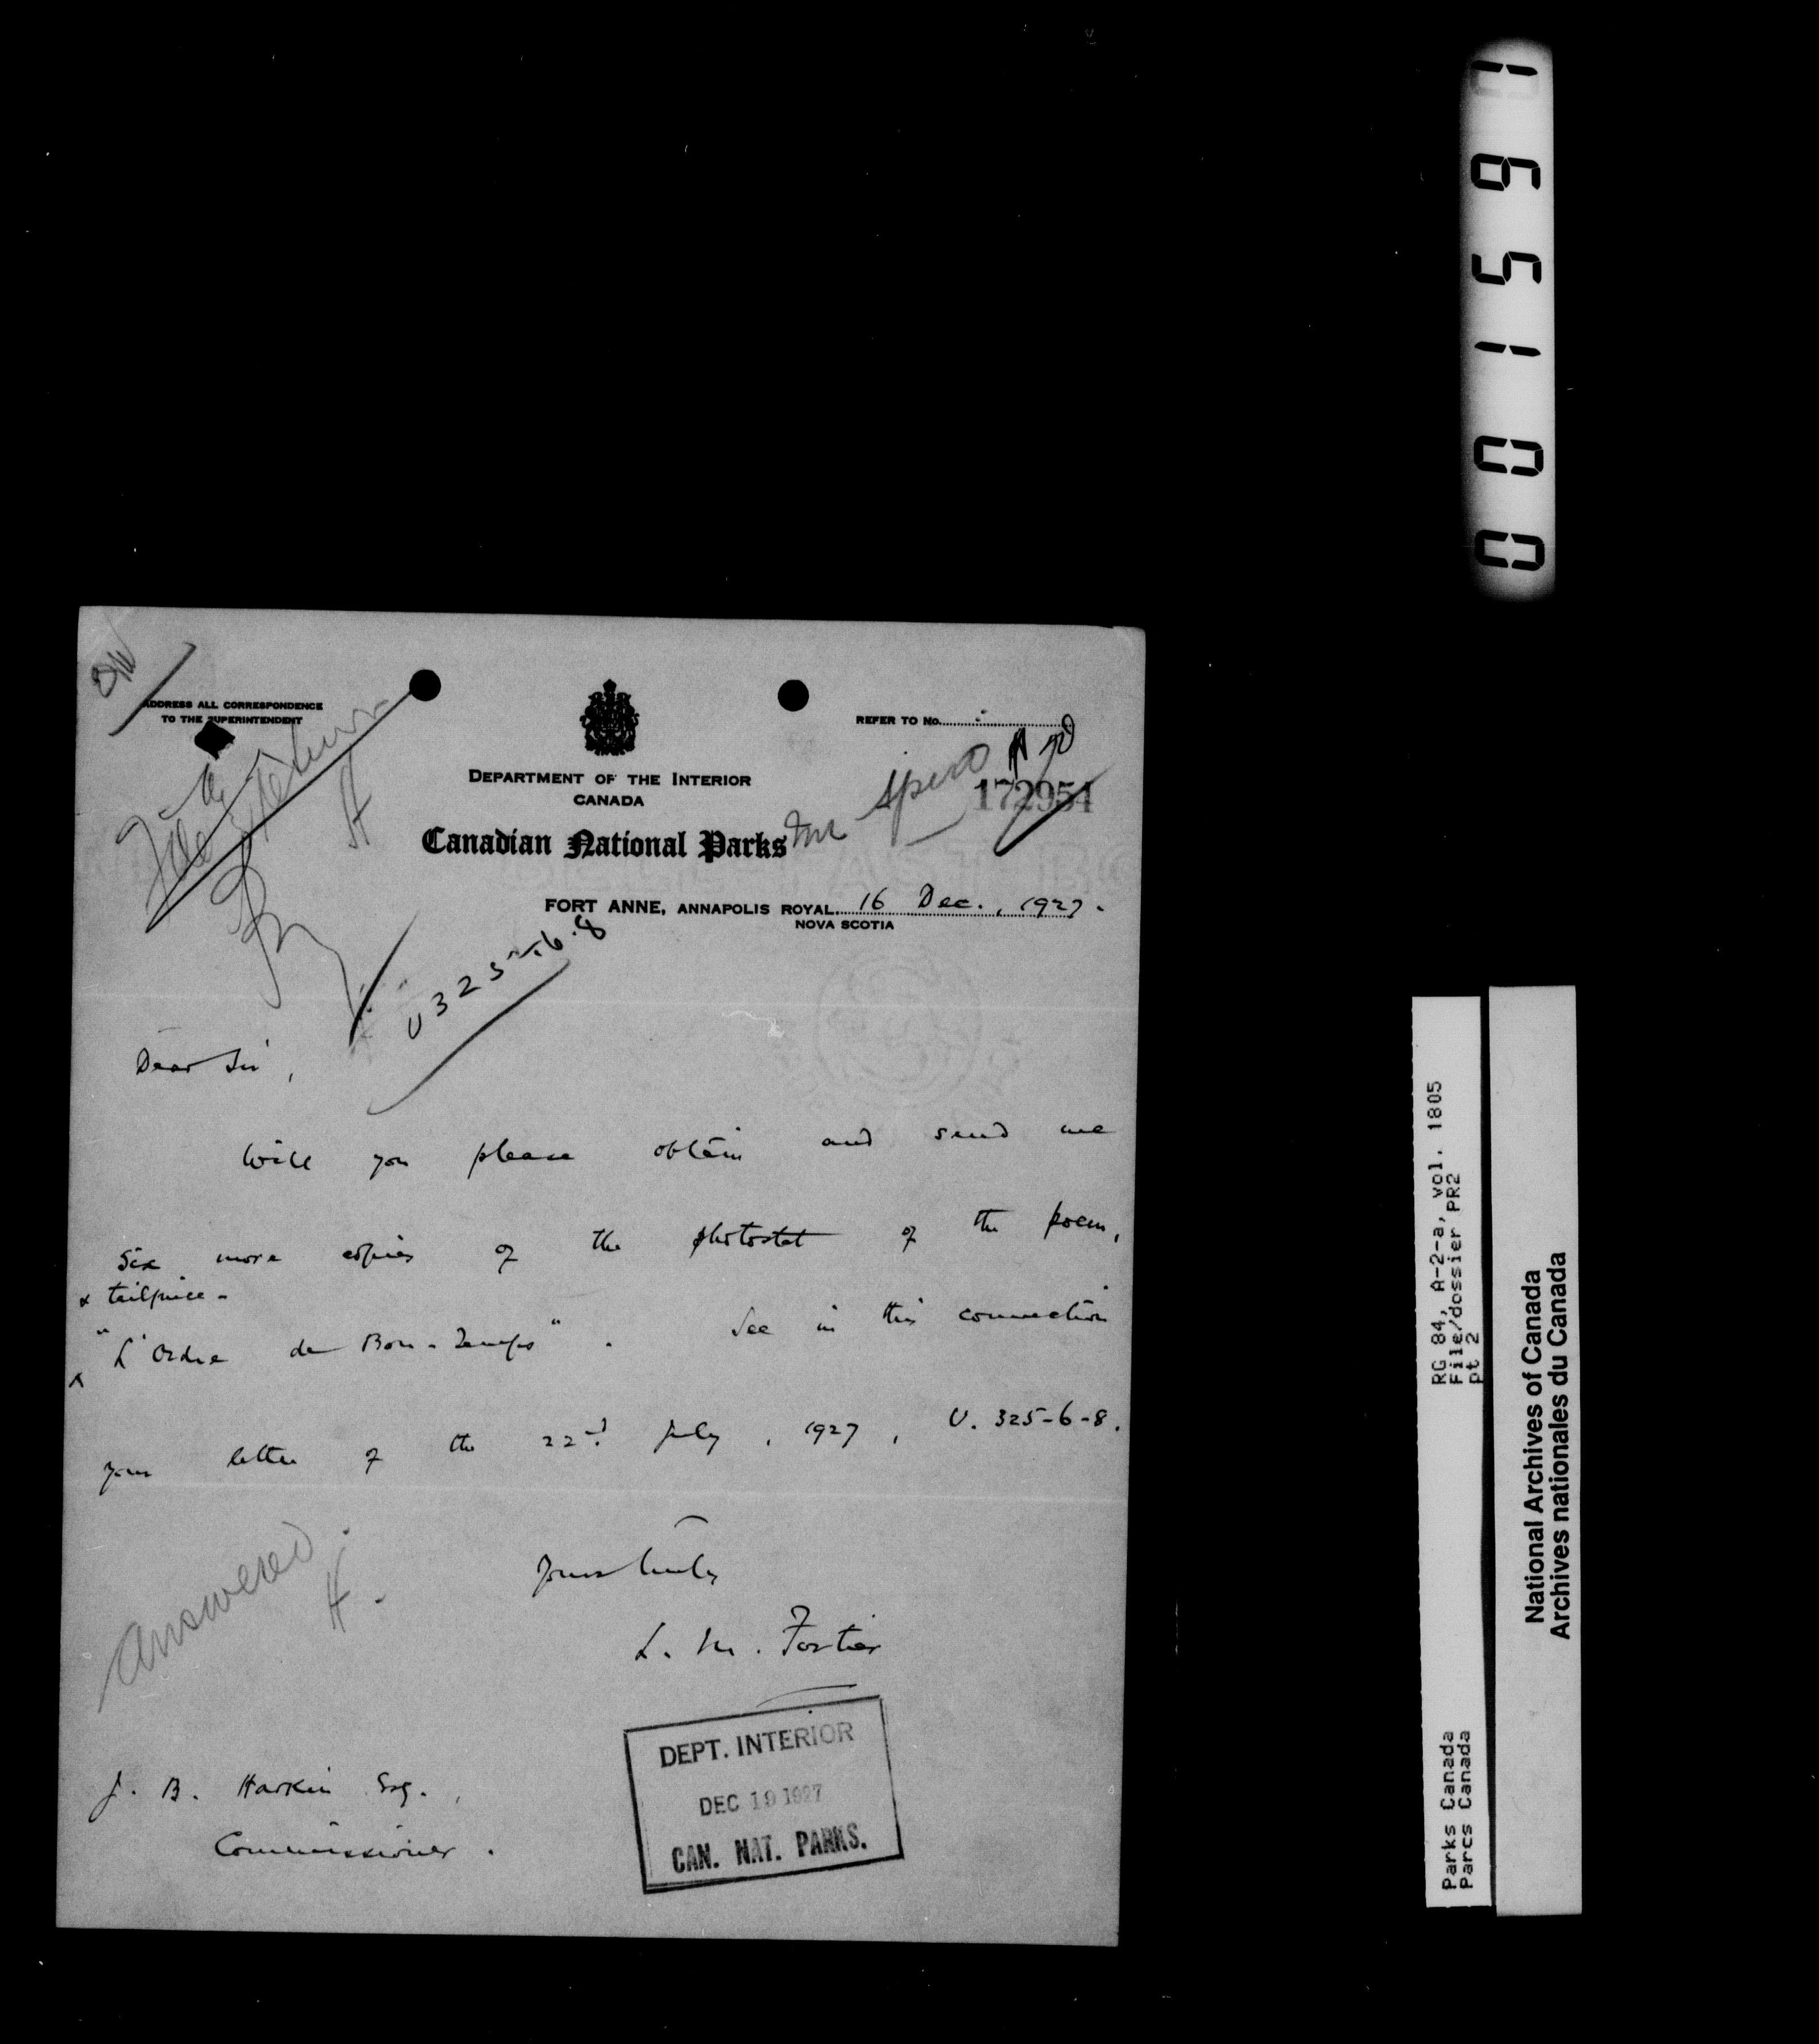 ADDRESS ALL CORRESPONDENCE
TO THE SUPERINTENDENT
REFER TO No.
DEPARTMENT OF THE INTERIOR
CANADA
172954
Canadian National Parks
FORT ANNE, ANNAPOLIS ROYAL. 16 Dec., 1927.
NOVA SCOTIA
U 325-6-8
Dear Sir,
Will you please obtain and send me
six more copies of the photostat of the poem,
& tailpiece -
"L'Ordre de Bon-Temps". See in this connection
your letter of the 22nd July, 1927, U. 325-6-8.
Answered
H.
Yours truly
L. M. Fortier
DEPT. INTERIOR
DEC 19 1927
CAN. NAT. PARKS.
J. B. Harkin Esq.,
Commissioner.
001561
RG 84, A-2-a, vol. 1805
File/dossier PR2
pt 2
Parks Canada
Parcs Canada
National Archives of Canada
Archives nationales du Canada